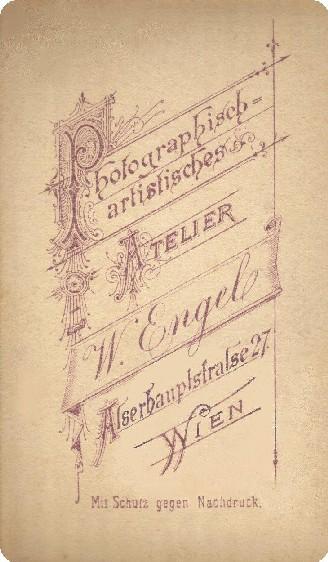 Photographisch-
artistisches
ATELIER
W. Engel
Alserhauptstraße 27.
WIEN
Mit Schutz gegen Nachdruck.